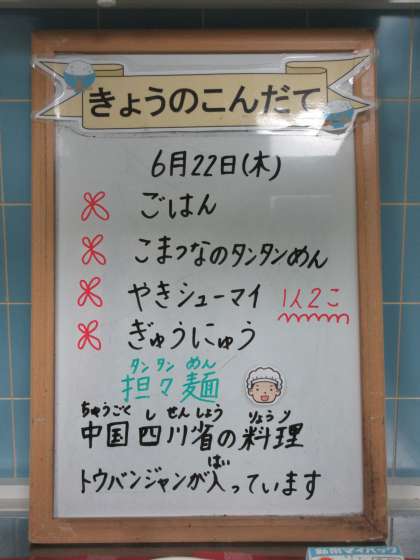 きょうのこんだて
6月22日(木)
ごはん
こまつなのタンタンめん
やきシューマイ 1人2こ
ぎゅうにゅう
タンタン めん
担々麺
ちゅうごく し せんしょう りょうり
中国 四川省の料理
はい
トウバンジャンが入っています